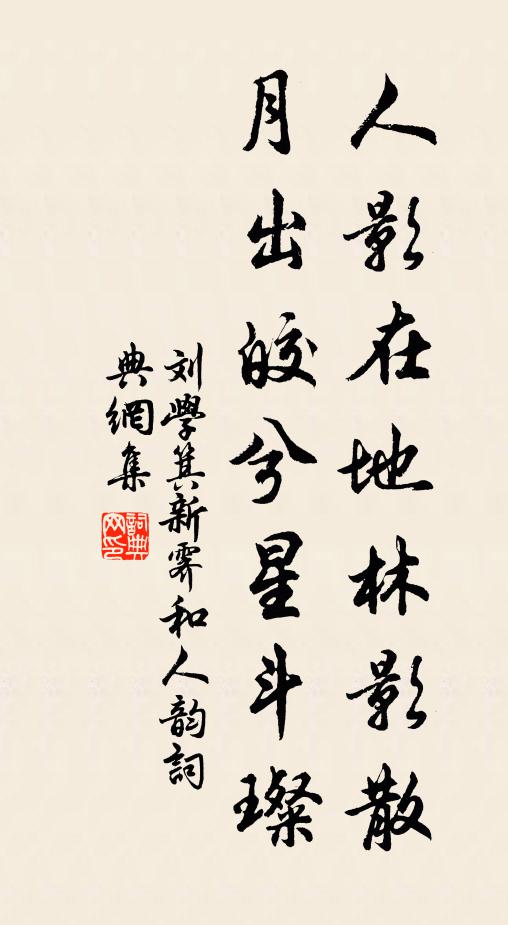 人影在地林影散
月出皎兮星斗璨
刘學箕新霁和人韵詞
典網集
詞典網印